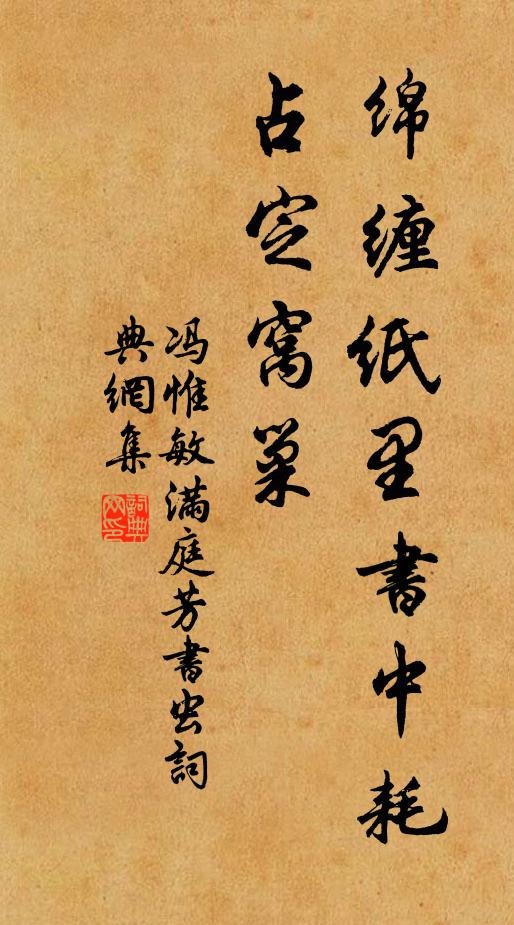 绵缠纸里书中耗
占定窝巢
冯惟敏满庭芳书虫詞
典網集
詞典
网印